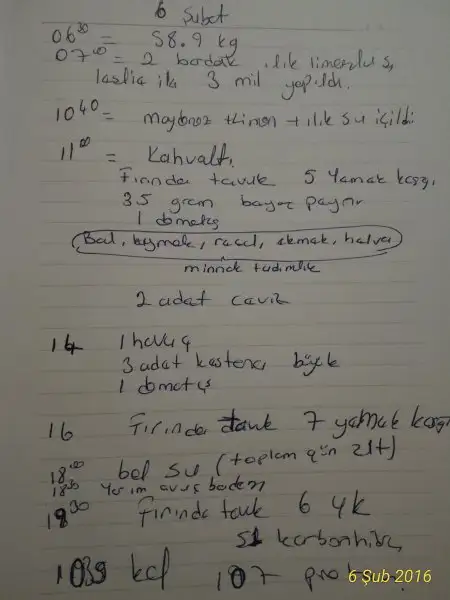 6 Şubat
06³⁰ = 58.9 kg
07⁰⁰ = 2 bardak ılık limonlu s,
Leslie ile 3 mil yapıldı.
10⁴⁰ = maydonoz + limon + ılık su içildi
11⁰⁰ = Kahvaltı,
Fırında tavuk 5 Yemek kaşığı,
35 gram beyaz peynir
1 domates
Bal, kaymak, reçel, ekmek, helva
minnak tadımlık
2 adet ceviz
14 1 havuç
3 adet kestane büyük
1 domates
16 Fırında tavuk 7 yemek kaşığı
18.00 bol su (toplam gün 2 lt)
18³⁰ Yarım avuç badem
19³⁰ Fırında tavuk 6 YK
51 karbonhidr,
1039 kcl 107 prote
6 Şub 2016